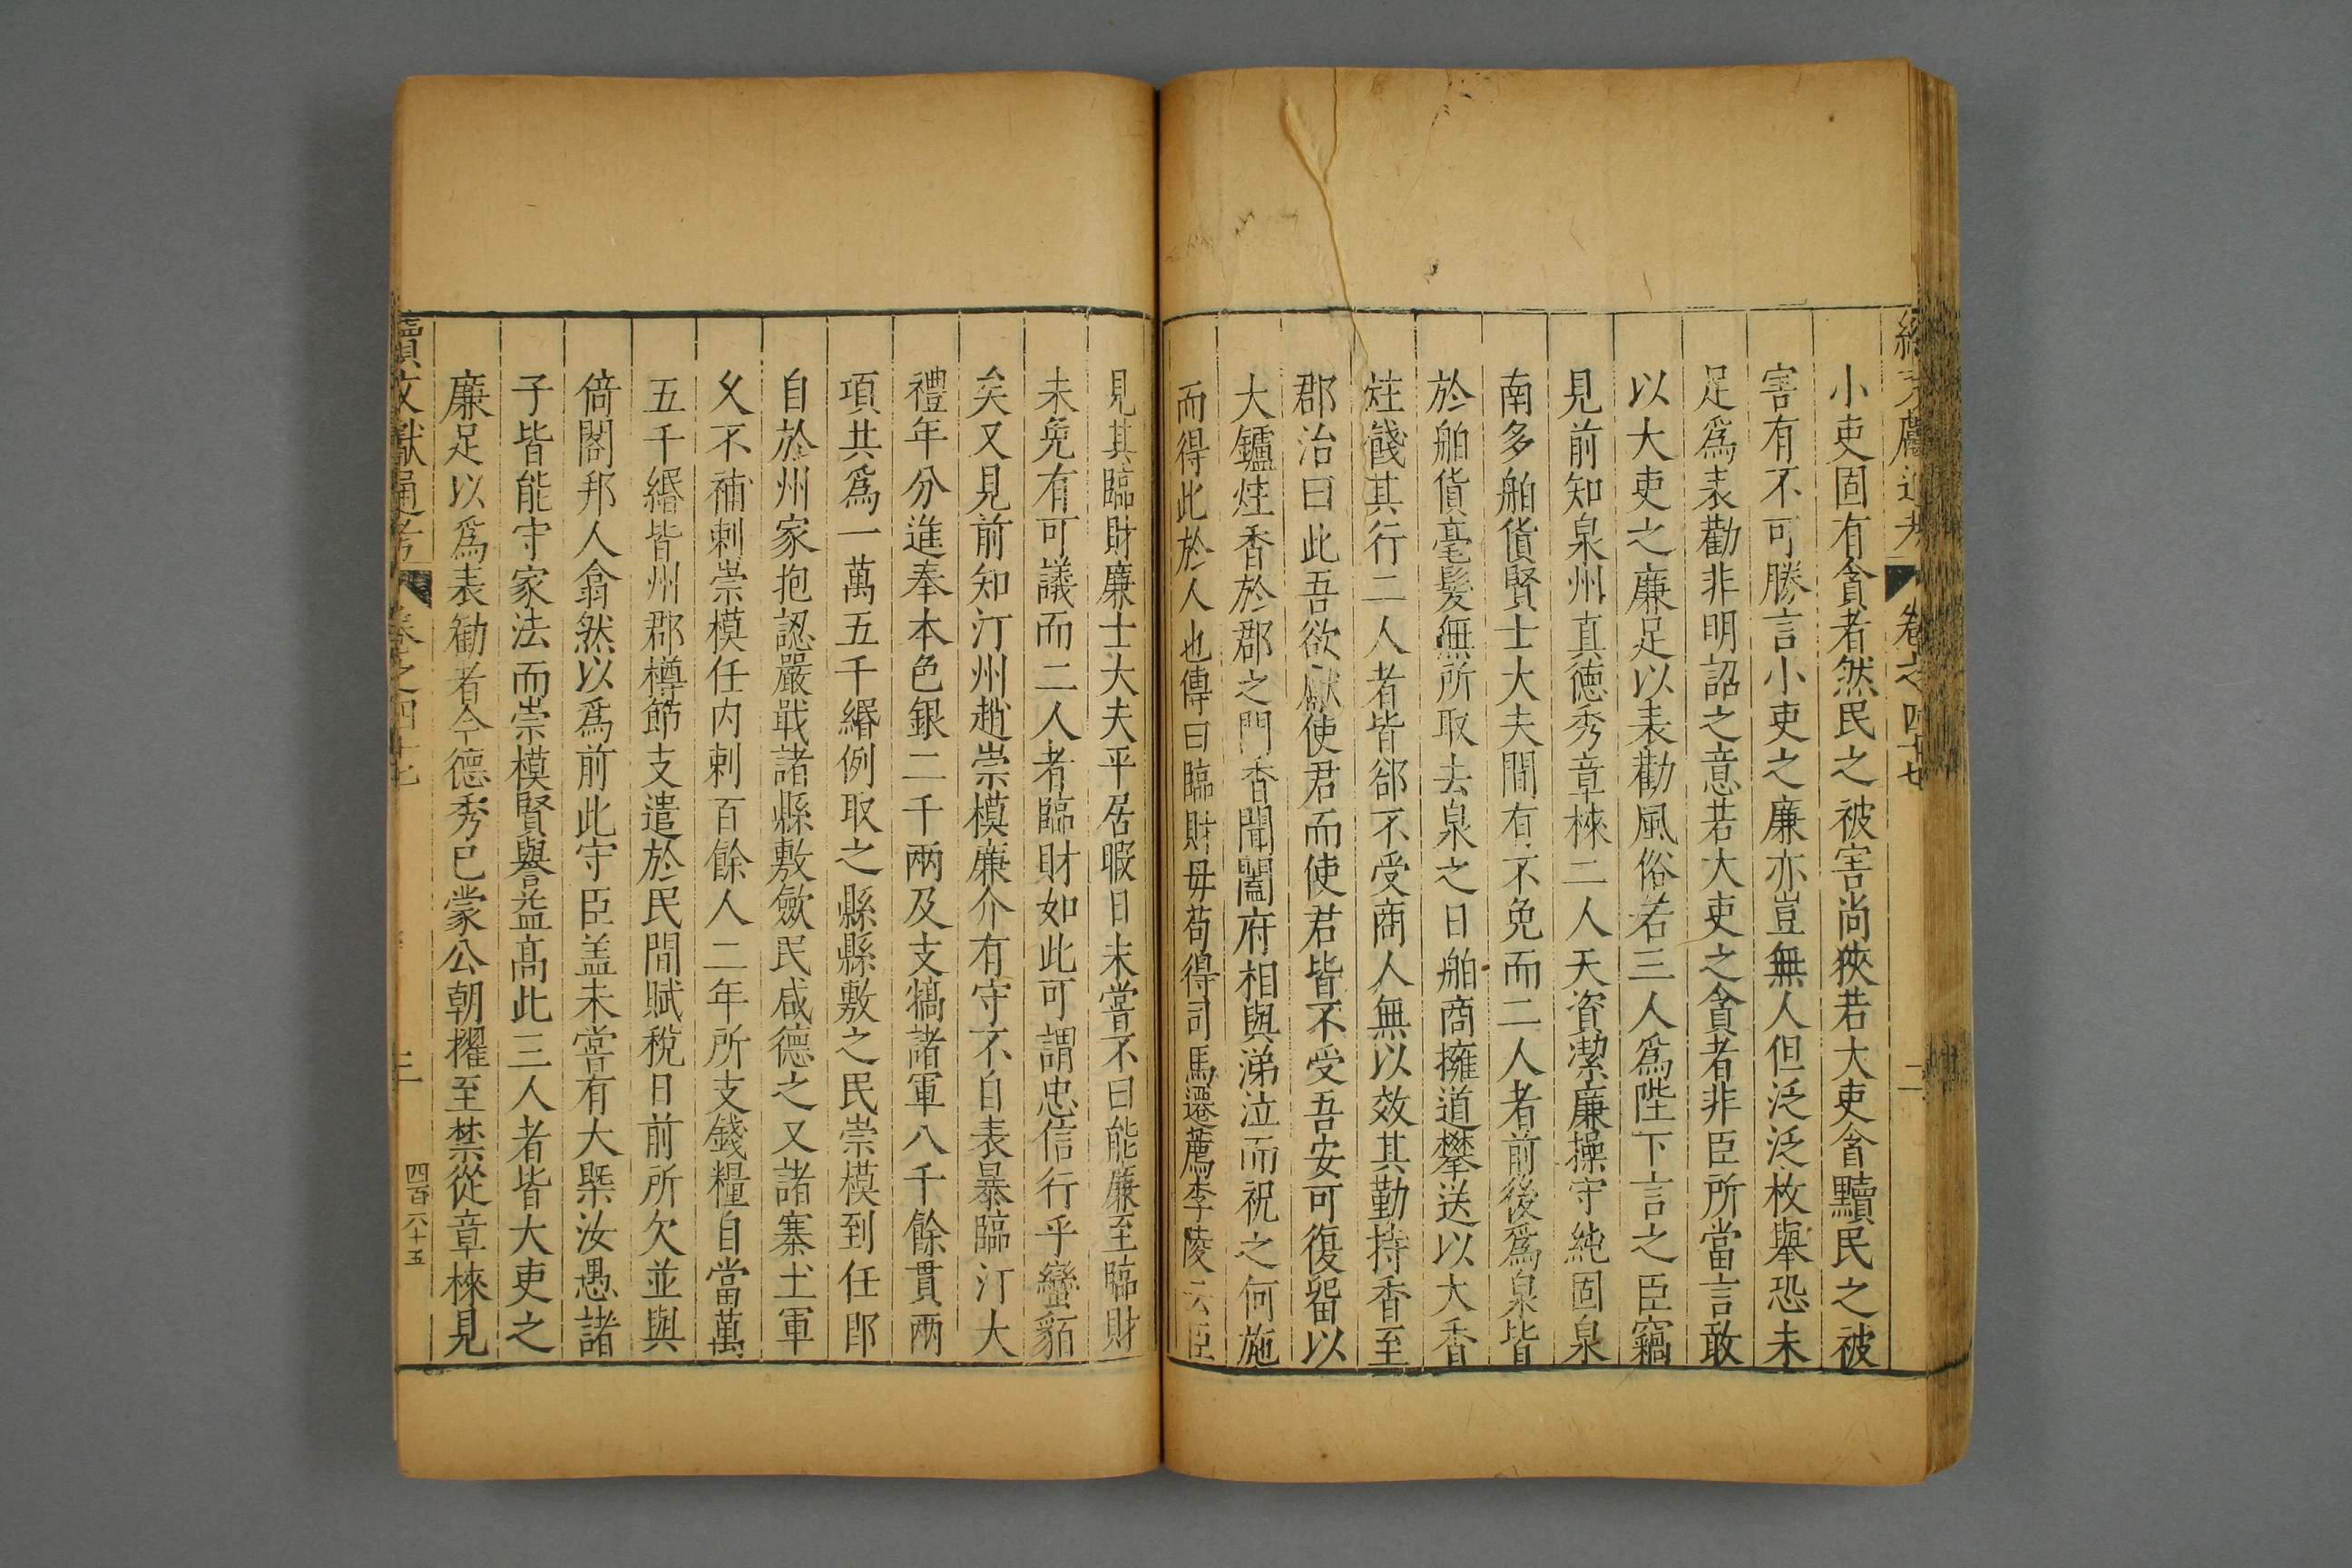 續文獻通考 卷之四十七 二
小吏固有貪者然民之被害尚狹若大吏貪黷民之被
害有不可勝言小吏之廉亦豈無人但泛泛枚舉恐未
足爲表勸非明詔之意若大吏之貪者非臣所當言敢
以大吏之廉足以表勸風俗若三人爲陛下言之臣竊
見前知泉州真德秀章棶二人天資潔廉操守純固泉
南多舶貨賢士大夫間有不免而二人者前後爲泉皆
於舶貨毫髮無所取去泉之日舶商擁道攀送以大香
炷餞其行二人者皆郤不受商人無以效其勤持香至
郡治曰此吾欲獻使君而使君皆不受吾安可復留以
大鑪炷香於郡之門香聞闔府相與涕泣而祝之何施
而得此於人也傳曰臨財毋苟得司馬遷薦李陵云臣
見其臨財廉士大夫平居暇日未嘗不曰能廉至臨財
未免有可議而二人者臨財如此可謂忠信行乎蠻貊
矣又見前知汀州趙崇模廉介有守不自表暴臨汀大
禮年分進奉本色銀二千兩及支犒諸軍八千餘貫兩
項共爲一萬五千緡例取之縣縣敷之民崇模到任卽
自於州家抱認嚴戢諸縣敷歛民咸德之又諸寨土軍
久不補剌崇模任内剌百餘人二年所支錢糧自當萬
五千緡皆州郡樽節支遣於民間賦稅日前所欠並與
倚閣邦人翕然以爲前此守臣盖未嘗有大槩汝愚諸
子皆能守家法而崇模賢譽益高此三人者皆大吏之
廉足以爲表勸者今德秀已蒙公朝擢至禁從章棶見
續文獻通考 卷之四十七 三 四百六十五